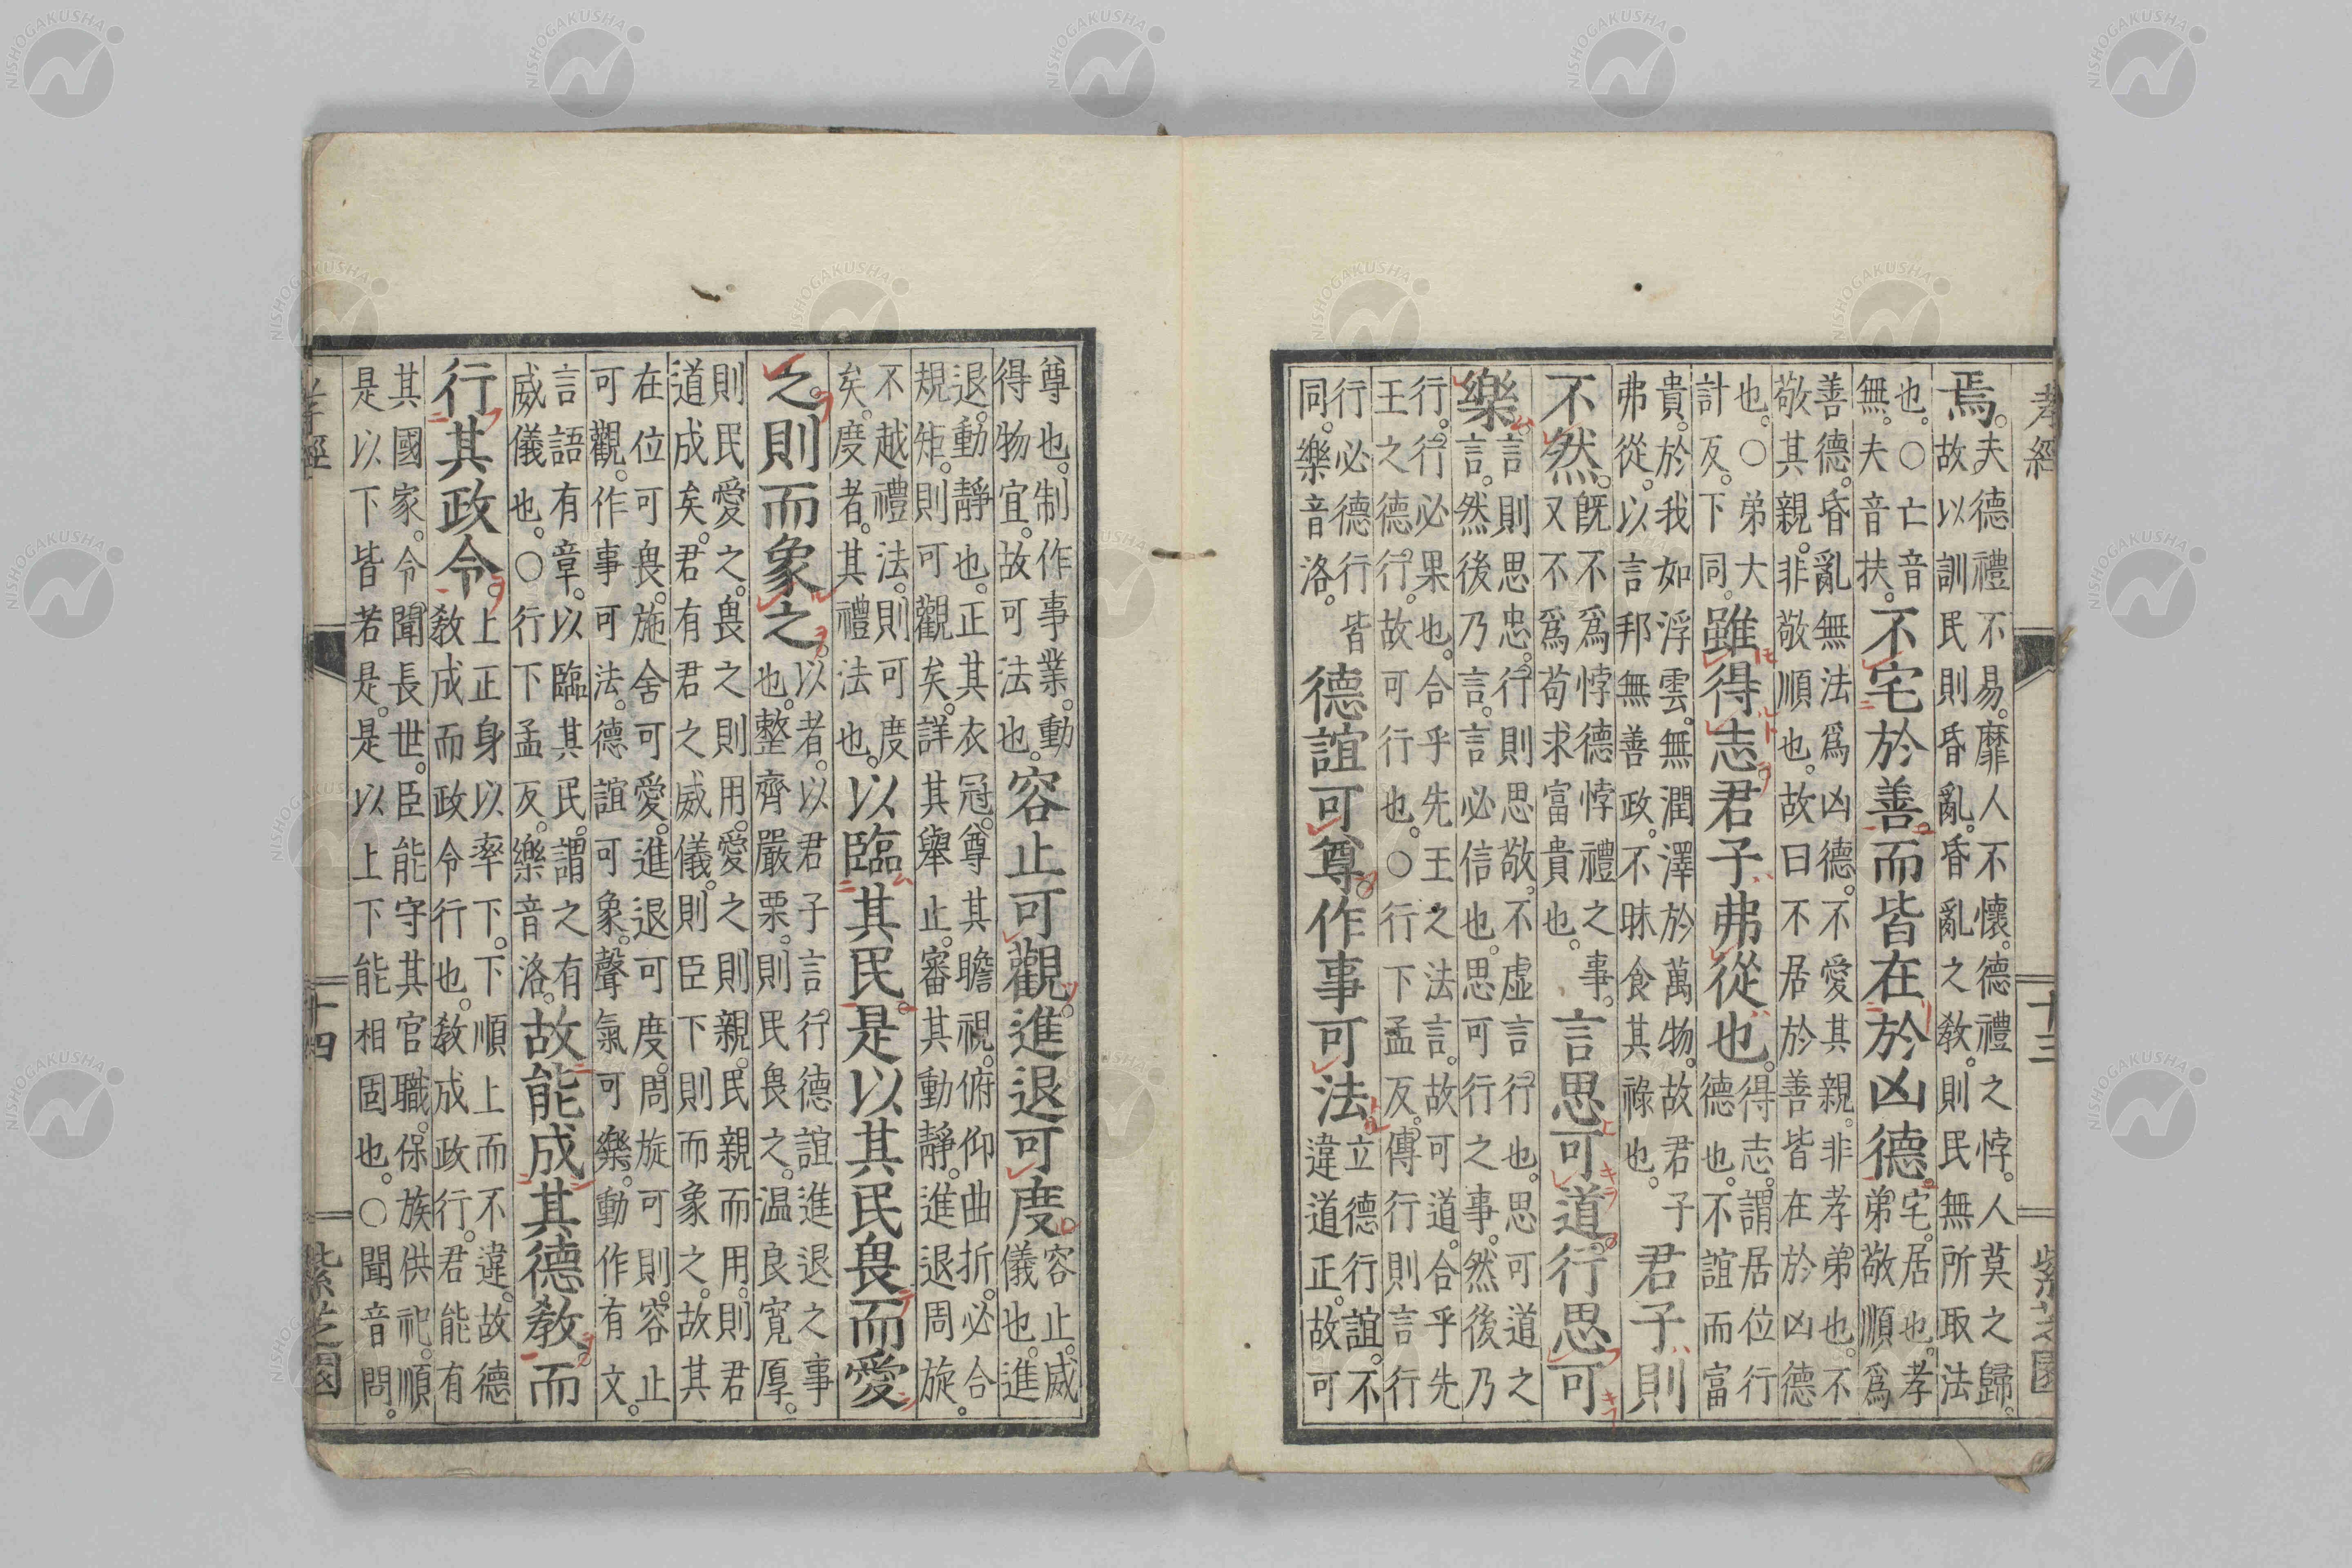 孝經 十三 紫芝園
焉。
夫德禮不易。靡人不懷。德禮之悖。人莫之歸。
故以訓民則昏亂。昏亂之教。則民無所取法
也。○亡音
無。夫音扶。
不宅於善。而皆在於凶德。
宅。居也。孝
弟敬順爲
善德。昏亂無法爲凶德。不愛其親。非孝弟也。不
敬其親。非敬順也。故曰不居於善皆在於凶德
也。○弟大
計反。下同。
雖得志君子弗從也。
得志。謂居位行
德也。不誼而富
貴。於我如浮雲。無潤澤於萬物。故君子
弗從。以言邦無善政。不昧食其祿也。
君子則
不然。
既不爲悖德悖禮之事。
又不爲苟求富貴也。
言思可道。行思可
樂。
言則思忠。行則思敬。不虛言行也。思可道之
言。然後乃言。言必信也。思可行之事。然後乃
行。行必果也。合乎先王之法言。故可道。合乎先
王之德行。故可行也。○行下孟反。傳行則言行
行必德行皆
同。樂音洛。
德誼可尊。作事可法。
立德行誼。不
違道正。故可
尊也。制作事業。動
得物宜。故可法也。
容止可觀。進退可度。
容止。威
儀也。進
退。動靜也。正其衣冠。尊其瞻視。俯仰曲折。必合
規矩。則可觀矣。詳其舉止。審其動靜。進退周旋。
不越禮法。則可度
矣。度者。其禮法也。
以臨其民。是以其民畏而愛
之。則而象之。
以者。以君子言行德誼進退之事
也。整齊嚴栗。則民畏之。温良寬厚。
則民愛之。畏之則用。愛之則親。民親而用。則君
道成矣。君有君之威儀。則臣下則而象之。故其
在位可畏。施舍可愛。進退可度。周旋可則。容止
可觀。作事可法。德誼可象。聲氣可樂。動作有文。
言語有章。以臨其民。謂之有
威儀也。○行下孟反。樂音洛。
故能成其德教。而
行其政令。
上正身以率下。下順上而不違。故德
教成而政令行也。教成政行。君能有
其國家。令聞長世。臣能守其官職。保族供祀。順
是以下皆若是。是以上下能相固也。○聞音問。
孝經 十四 紫芝園